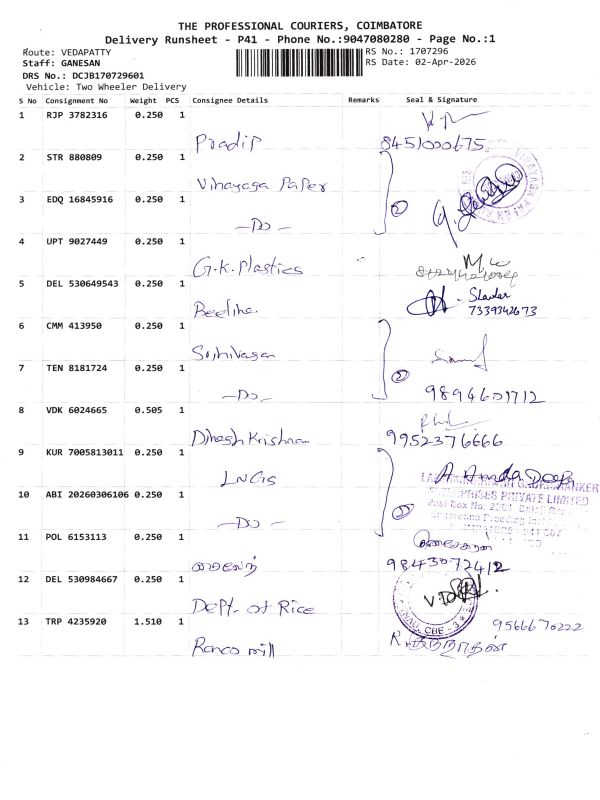 THE PROFESSIONAL COURIERS, COIMBATORE
Delivery Runsheet - P41 - Phone No.:9047080280 - Page No.:1
Route: VEDAPATTY RS No.: 1707296
Staff: GANESAN RS Date: 02-Apr-2026
DRS No.: DCJB170729601
Vehicle: Two Wheeler Delivery
S No Consignment No Weight PCS Consignee Details Remarks Seal & Signature
1 RJP 3782316 0.250 1
Pradip 8451000675
2 STR 880809 0.250 1
Vinayaga Paper
3 EDQ 16845916 0.250 1
2
-Do-
4 UPT 9027449 0.250 1
G.K. Plastics
5 DEL 530649543 0.250 1
Beeline 7339342673
6 CMM 413950 0.250 1
Srinivasan
7 TEN 8181724 0.250 1
2
-Do- 9894601712
8 VDK 6024665 0.505 1
Dinesh Krishnan 9952376666
9 KUR 7005813011 0.250 1
LNGS
10 ABI 20260306106 0.250 1
PRISES PRIVATE LIMITED
-Do- 2
11 POL 6153113 0.250 1
9843072412
12 DEL 530984667 0.250 1
Dept. of Rice CBE - 3
13 TRP 4235920 1.510 1
9566670222
Ranco mill